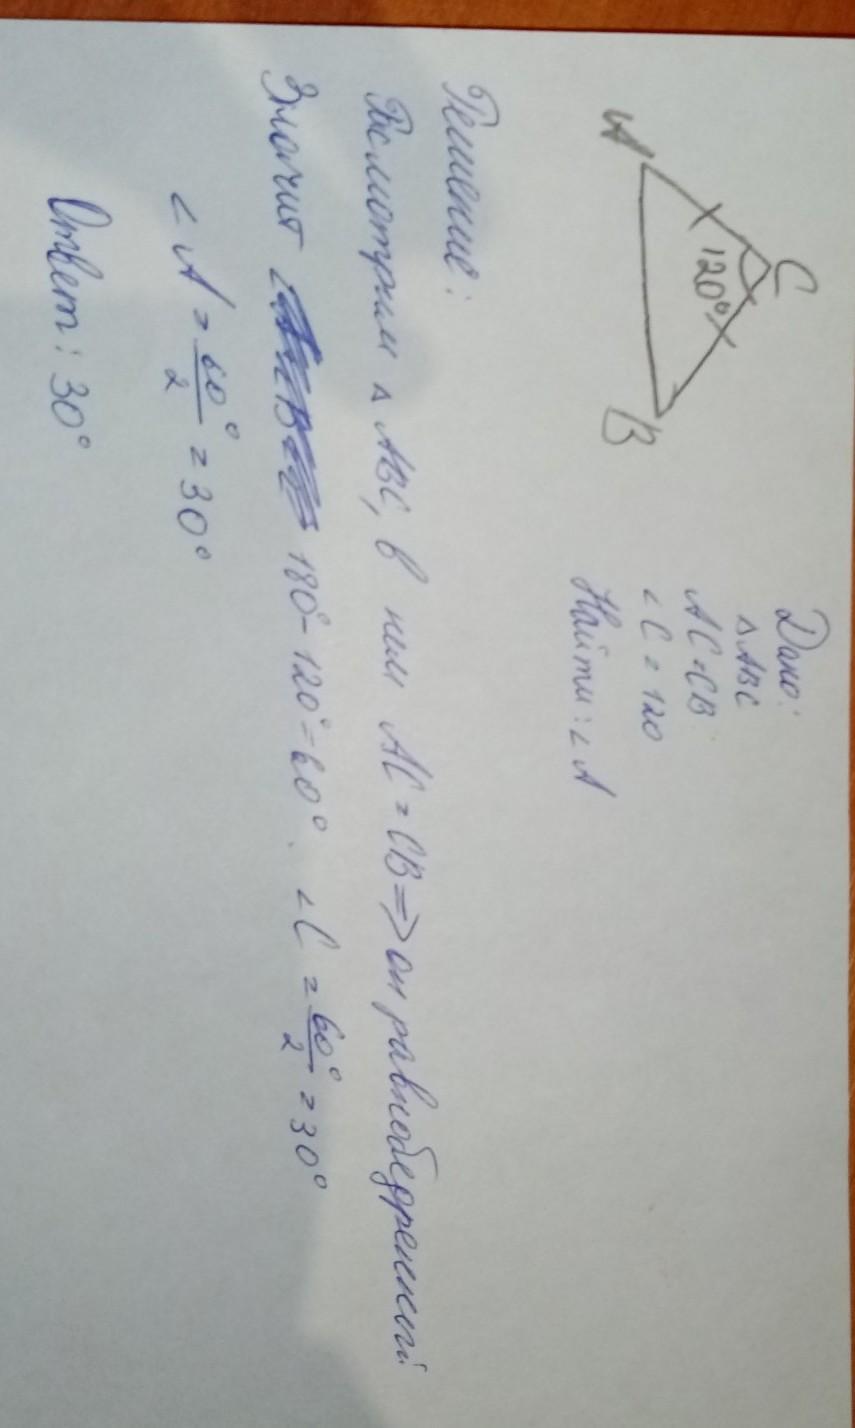 C
120°
A
B
Дано:
△ABC
AC=CB
∠C=120
Найти: ∠A
Решение:
Расмотрим △ABC, в нем AC=CB=>он равнобедренный
Значит 180°-120°=60°. ∠C=60°/2=30°
∠A=60°/2=30°
Ответ: 30°